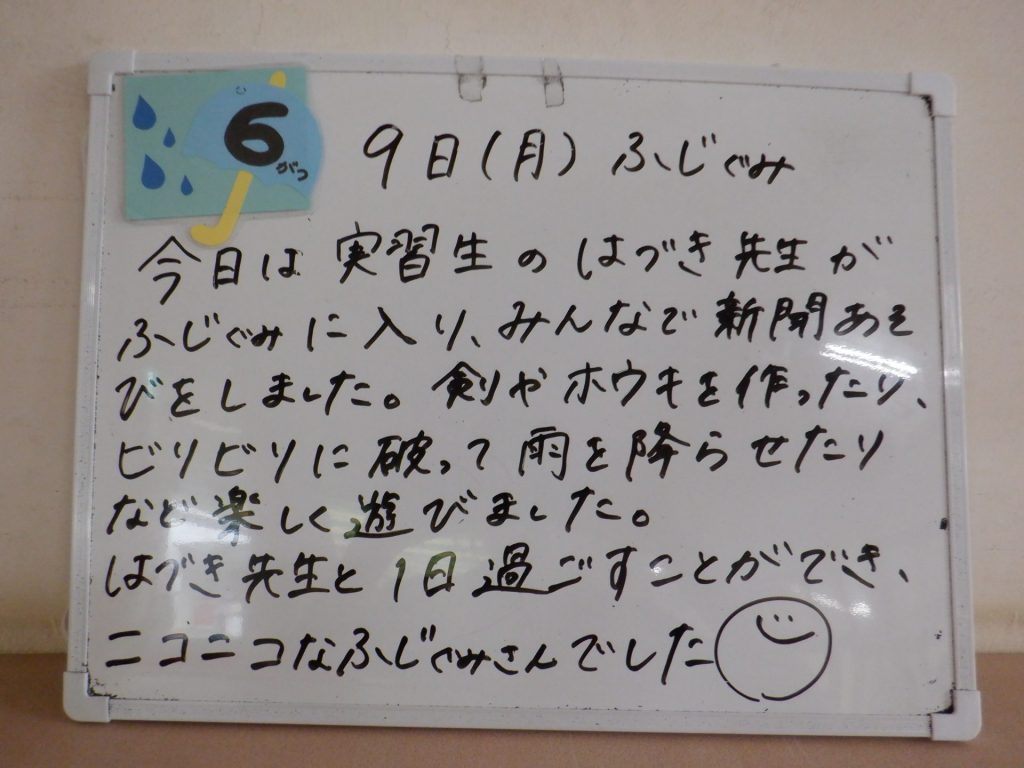 6がつ
9日(月) ふじぐみ
今日は実習生のはづき先生が
ふじぐみに入り、みんなで新聞あそ
びをしました。剣やホウキを作ったり、
ビリビリに破って雨を降らせたり
など楽しく遊びました。
はづき先生と1日過ごすことができ、
ニコニコなふじぐみさんでした